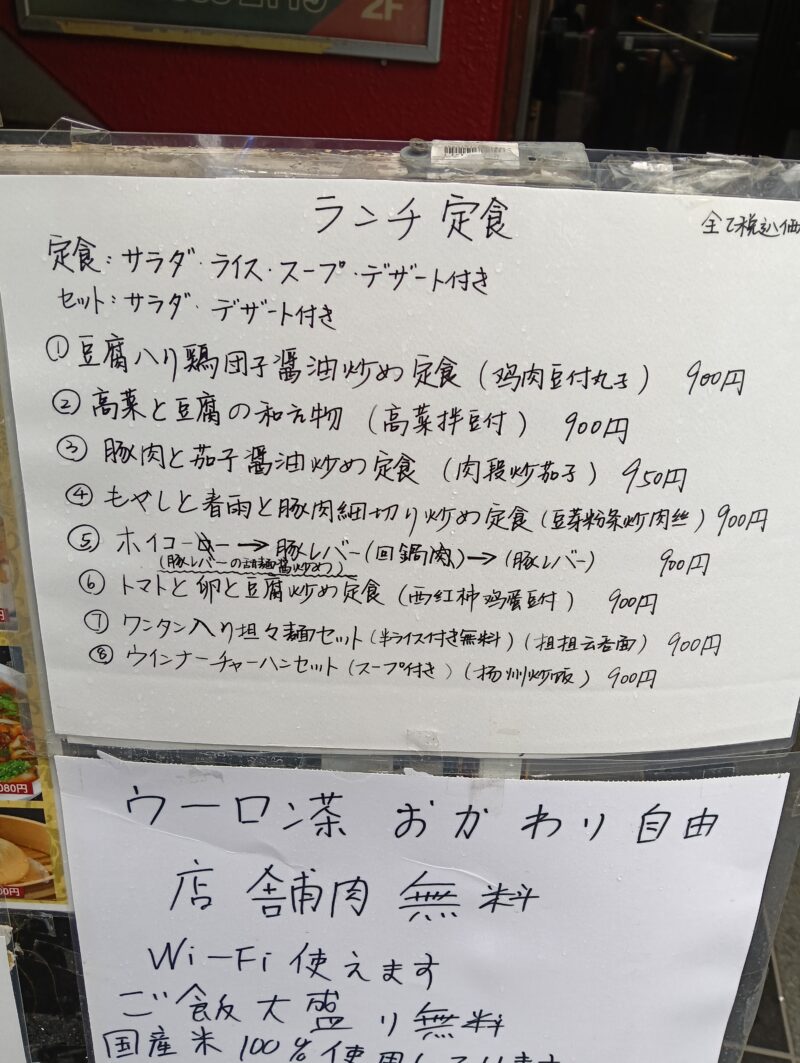 2F
ランチ 定食
全て税込価
定食:サラダ・ライス・スープ・デザート付き
セット:サラダ・デザート付き
① 豆腐入り鶏団子醤油炒め定食(鸡肉豆付丸子) 900円
② 高菜と豆腐の和え物(高菜拌豆付) 900円
③ 豚肉と茄子醤油炒め定食(肉段炒茄子) 950円
④ もやしと春雨と豚肉細切り炒め定食(豆芽粉条炒肉丝) 900円
⑤ ホイコーロー→豚レバー(回鍋肉)→(豚レバー) 900円
(豚レバーの胡麺醤炒め)
⑥ トマトと卵と豆腐炒め定食(西红柿鸡蛋豆付) 900円
⑦ ワンタン入り坦々麺セット(半ライス付き無料)(担担云吞面) 900円
⑧ ウインナーチャーハンセット(スープ付き)(扬州炒飯) 900円
080円
00円
ウーロン茶 おかわり自由
店舗肉 無料
Wi-Fi 使えます
ご飯大盛り無料
国産米100%使用しております